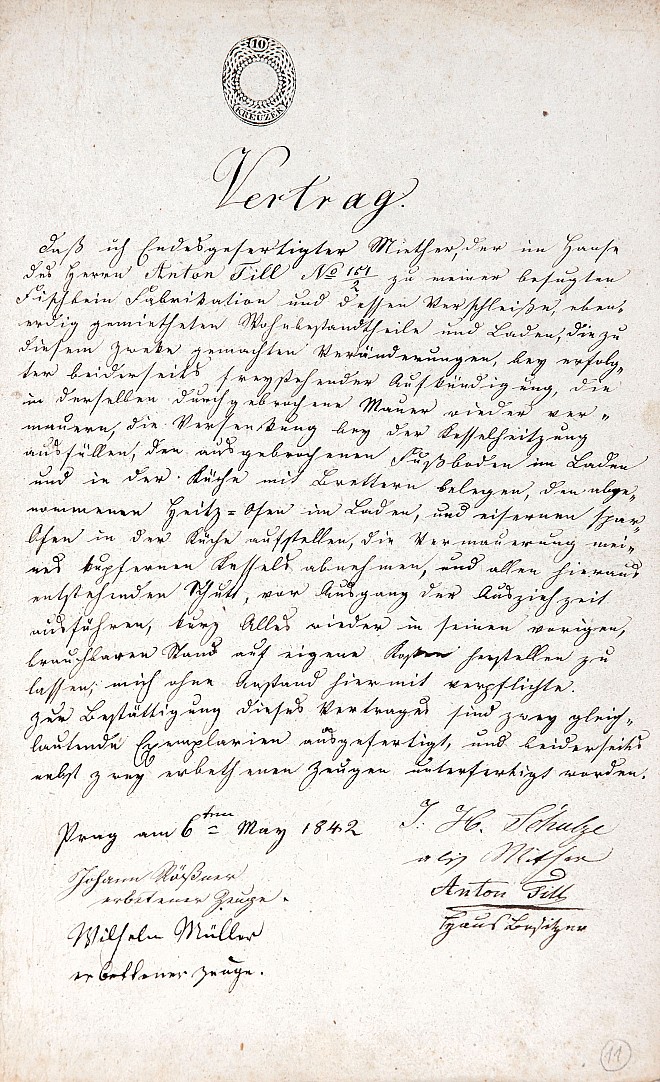 10
KREUZER
Vertrag.
Daß ich Endesgefertigter Miether, der im Hause
des Herrn Anton Till No 151/2 zu meiner befugten
Fischbein Fabrikation und dessen Verschleiße, eben-
erdig gemietheten Wohnbestandtheile und Laden, die zu
diesem Zweke gemachten Veränderungen, bey erfolg-
ter beiderseits freystehender Aufkündigung, die
in derselben durchgebrochene Mauer wieder ver-
mauern, die Versenkung bey der Kesselheitzung
ausfüllen, den ausgebrochenen Fußboden im Laden
und in der Küche mit Brettern belegen, den abge-
nommenen Heitz=Ofen im Laden, und eisernen Spar-
Ofen in der Küche aufstellen, die Vermauerung mei-
nes kupfernen Kessels abnehmen, und allen hieraus
entstehenden Schutt, vor Ausgang der Ausziehzeit
ausführen, kurz Alles wieder in seinen vorigen,
brauchbaren Stand auf eigene Kosten herstellen zu
lassen, mich ohne Anstand hiermit verpflichte.
Zur Bestättigung dieses Vertrages sind zwey gleich-
lautende Exemplarien ausgefertigt, und beiderseits
nebst zwey erbethenen Zeugen unterfertigt worden.
Prag am 6ten May 1842
J. H. Schulze
als Mither
Johann Rößner
erbetener Zeuge.
Anton Till
Haus Besitzer
Wilhelm Müller
erbettener Zeuge.
11